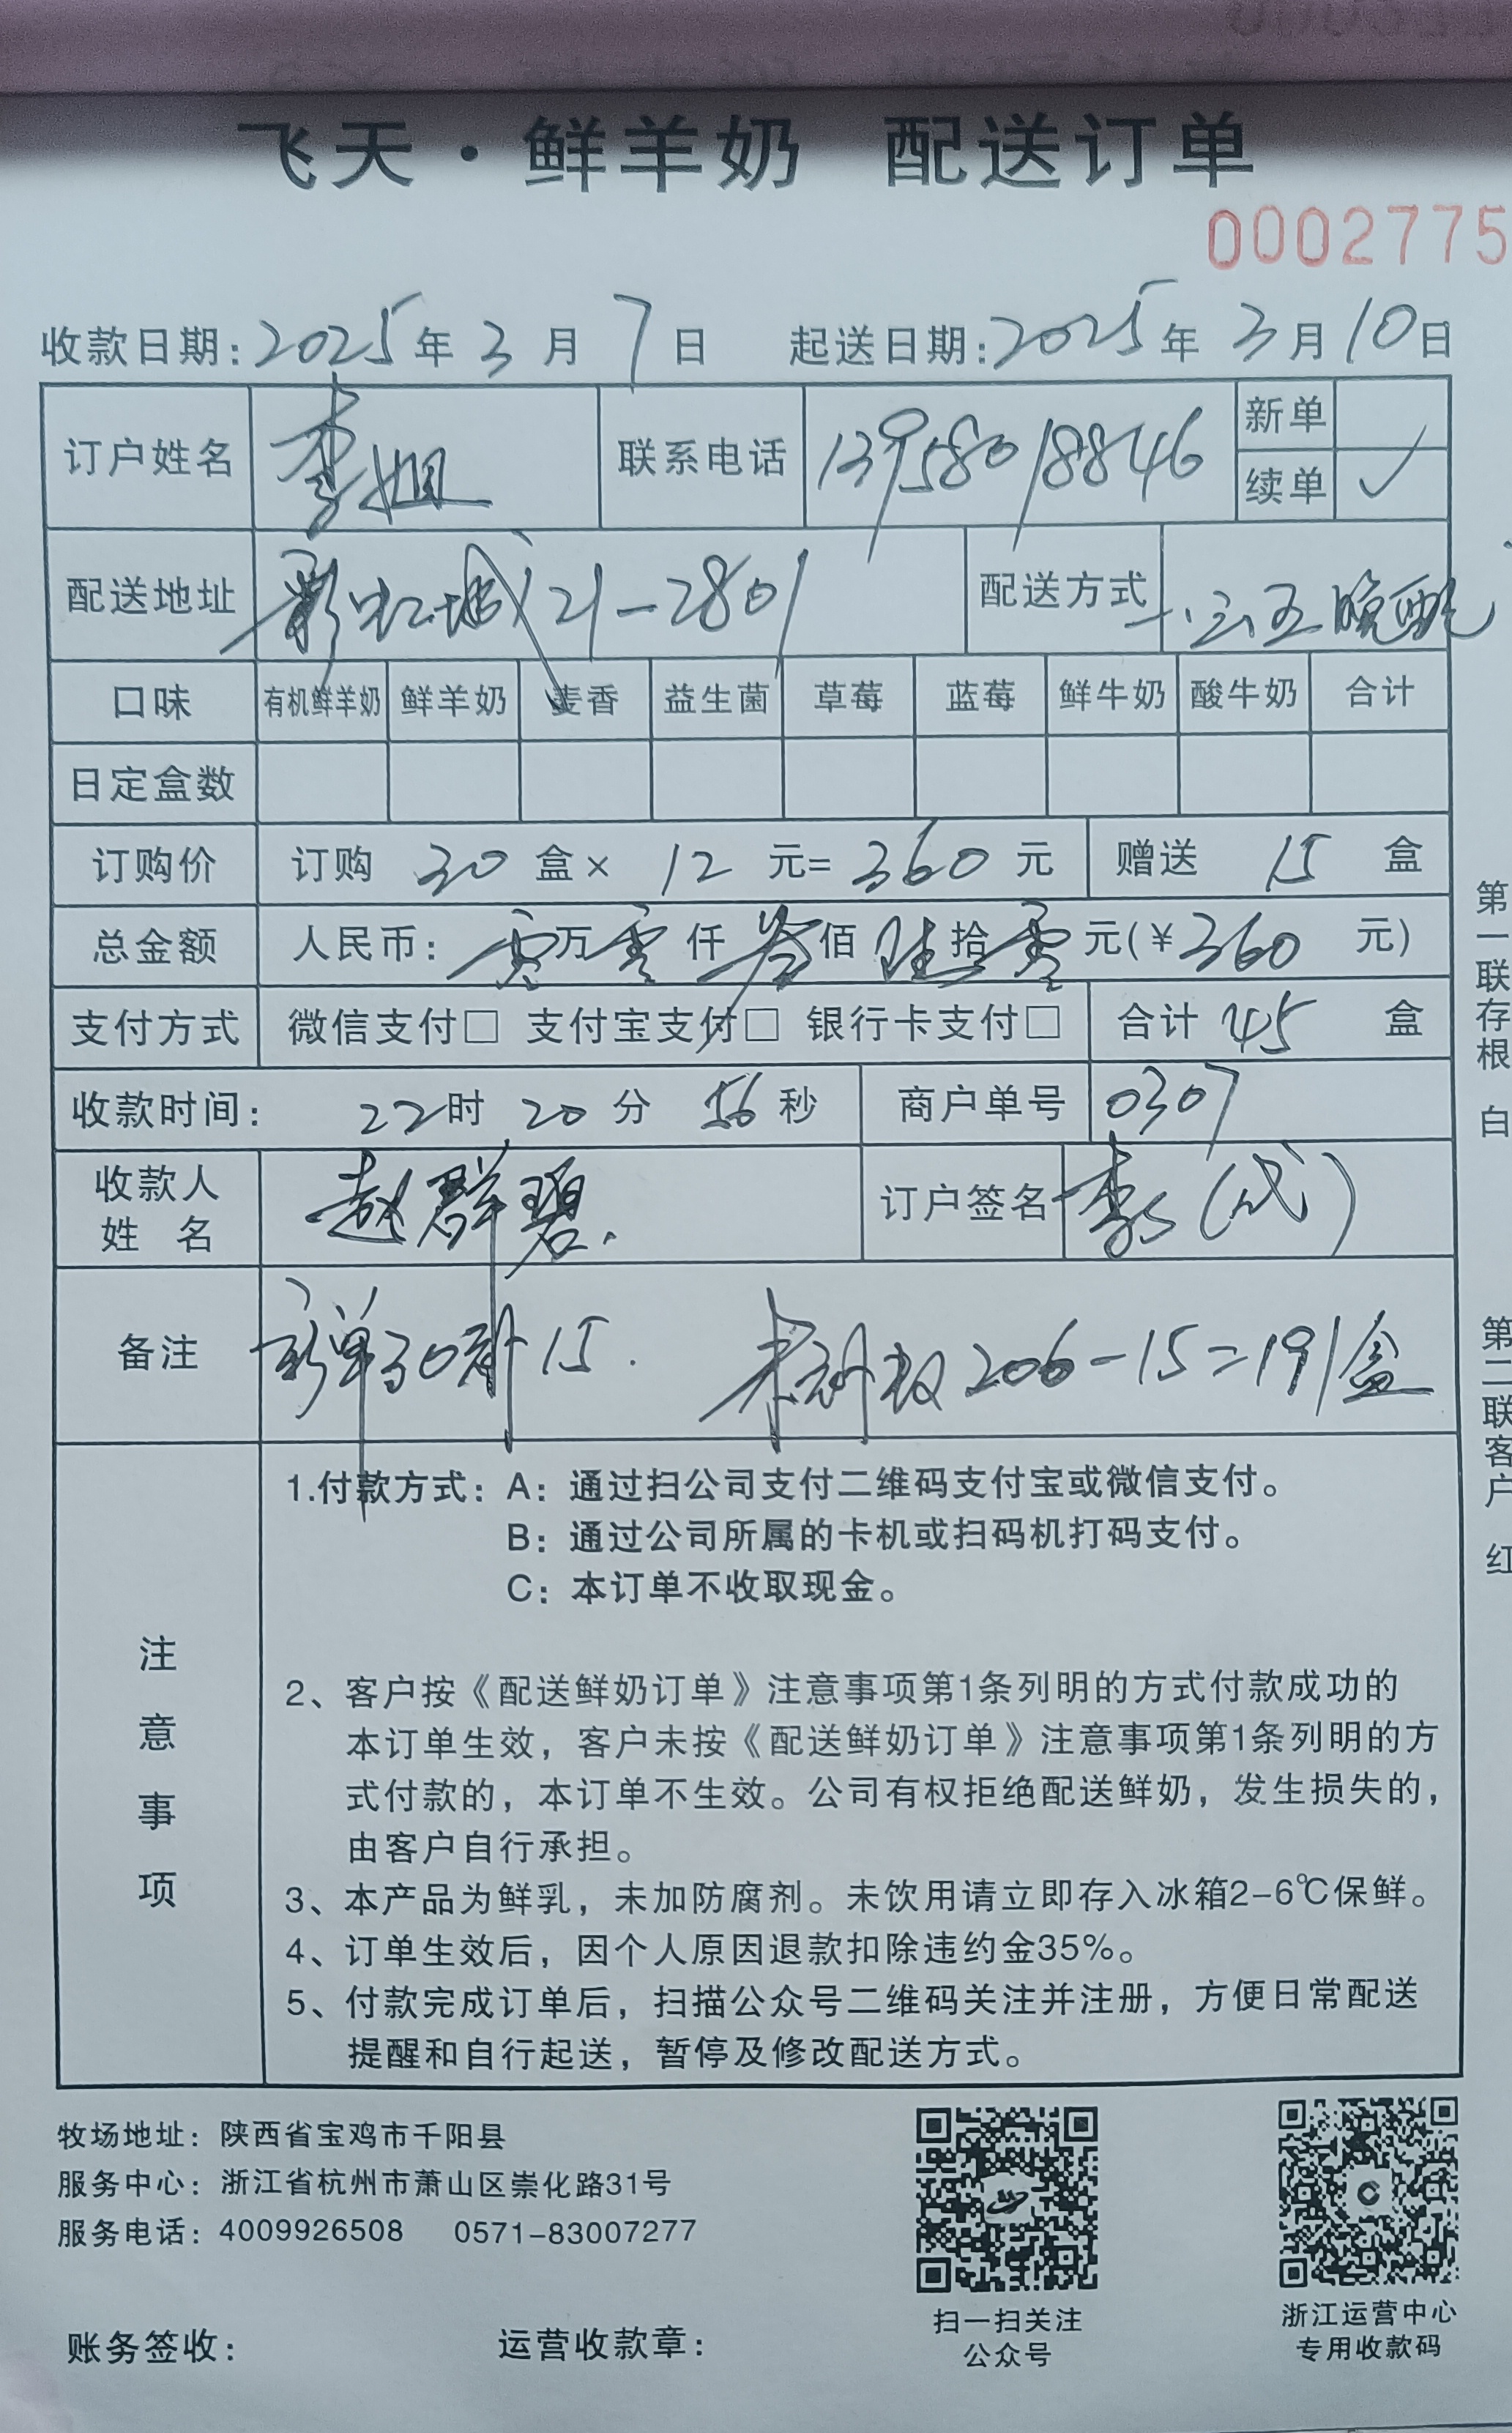 飞天·鲜羊奶 配送订单
0002775
收款日期:2025年3月7日 起送日期:2025年3月10日
订户姓名 李姐 联系电话 13958018846 新单
续单 ✓
配送地址 彩虹城21-2801 配送方式 一.三五晚配
口味 有机鲜羊奶 鲜羊奶 麦香 益生菌 草莓 蓝莓 鲜牛奶 酸牛奶 合计
日定盒数
订购价 订购 30 盒× 12 元= 360 元 赠送 15 盒
总金额 人民币: 零万零仟叁佰陆拾零元(¥360 元)
支付方式 微信支付□ 支付宝支付□ 银行卡支付□ 合计 45 盒
收款时间: 22时 20分 56秒 商户单号 0307
收款人
姓 名 赵群碧. 订户签名 李(代)
备注 单30 15. 206-15=191盒
注意事项
1.付款方式: A: 通过扫公司支付二维码支付宝或微信支付。
B: 通过公司所属的卡机或扫码机打码支付。
C: 本订单不收取现金。
2、客户按《配送鲜奶订单》注意事项第1条列明的方式付款成功的
本订单生效,客户未按《配送鲜奶订单》注意事项第1条列明的方
式付款的,本订单不生效。公司有权拒绝配送鲜奶,发生损失的,
由客户自行承担。
3、本产品为鲜乳,未加防腐剂。未饮用请立即存入冰箱2-6℃保鲜。
4、订单生效后,因个人原因退款扣除违约金35%。
5、付款完成订单后,扫描公众号二维码关注并注册,方便日常配送
提醒和自行起送,暂停及修改配送方式。
第一联存根 白
第二联客户 红
牧场地址: 陕西省宝鸡市千阳县
服务中心: 浙江省杭州市萧山区崇化路31号
服务电话: 4009926508 0571-83007277
扫一扫关注
公众号
浙江运营中心
专用收款码
账务签收: 运营收款章: